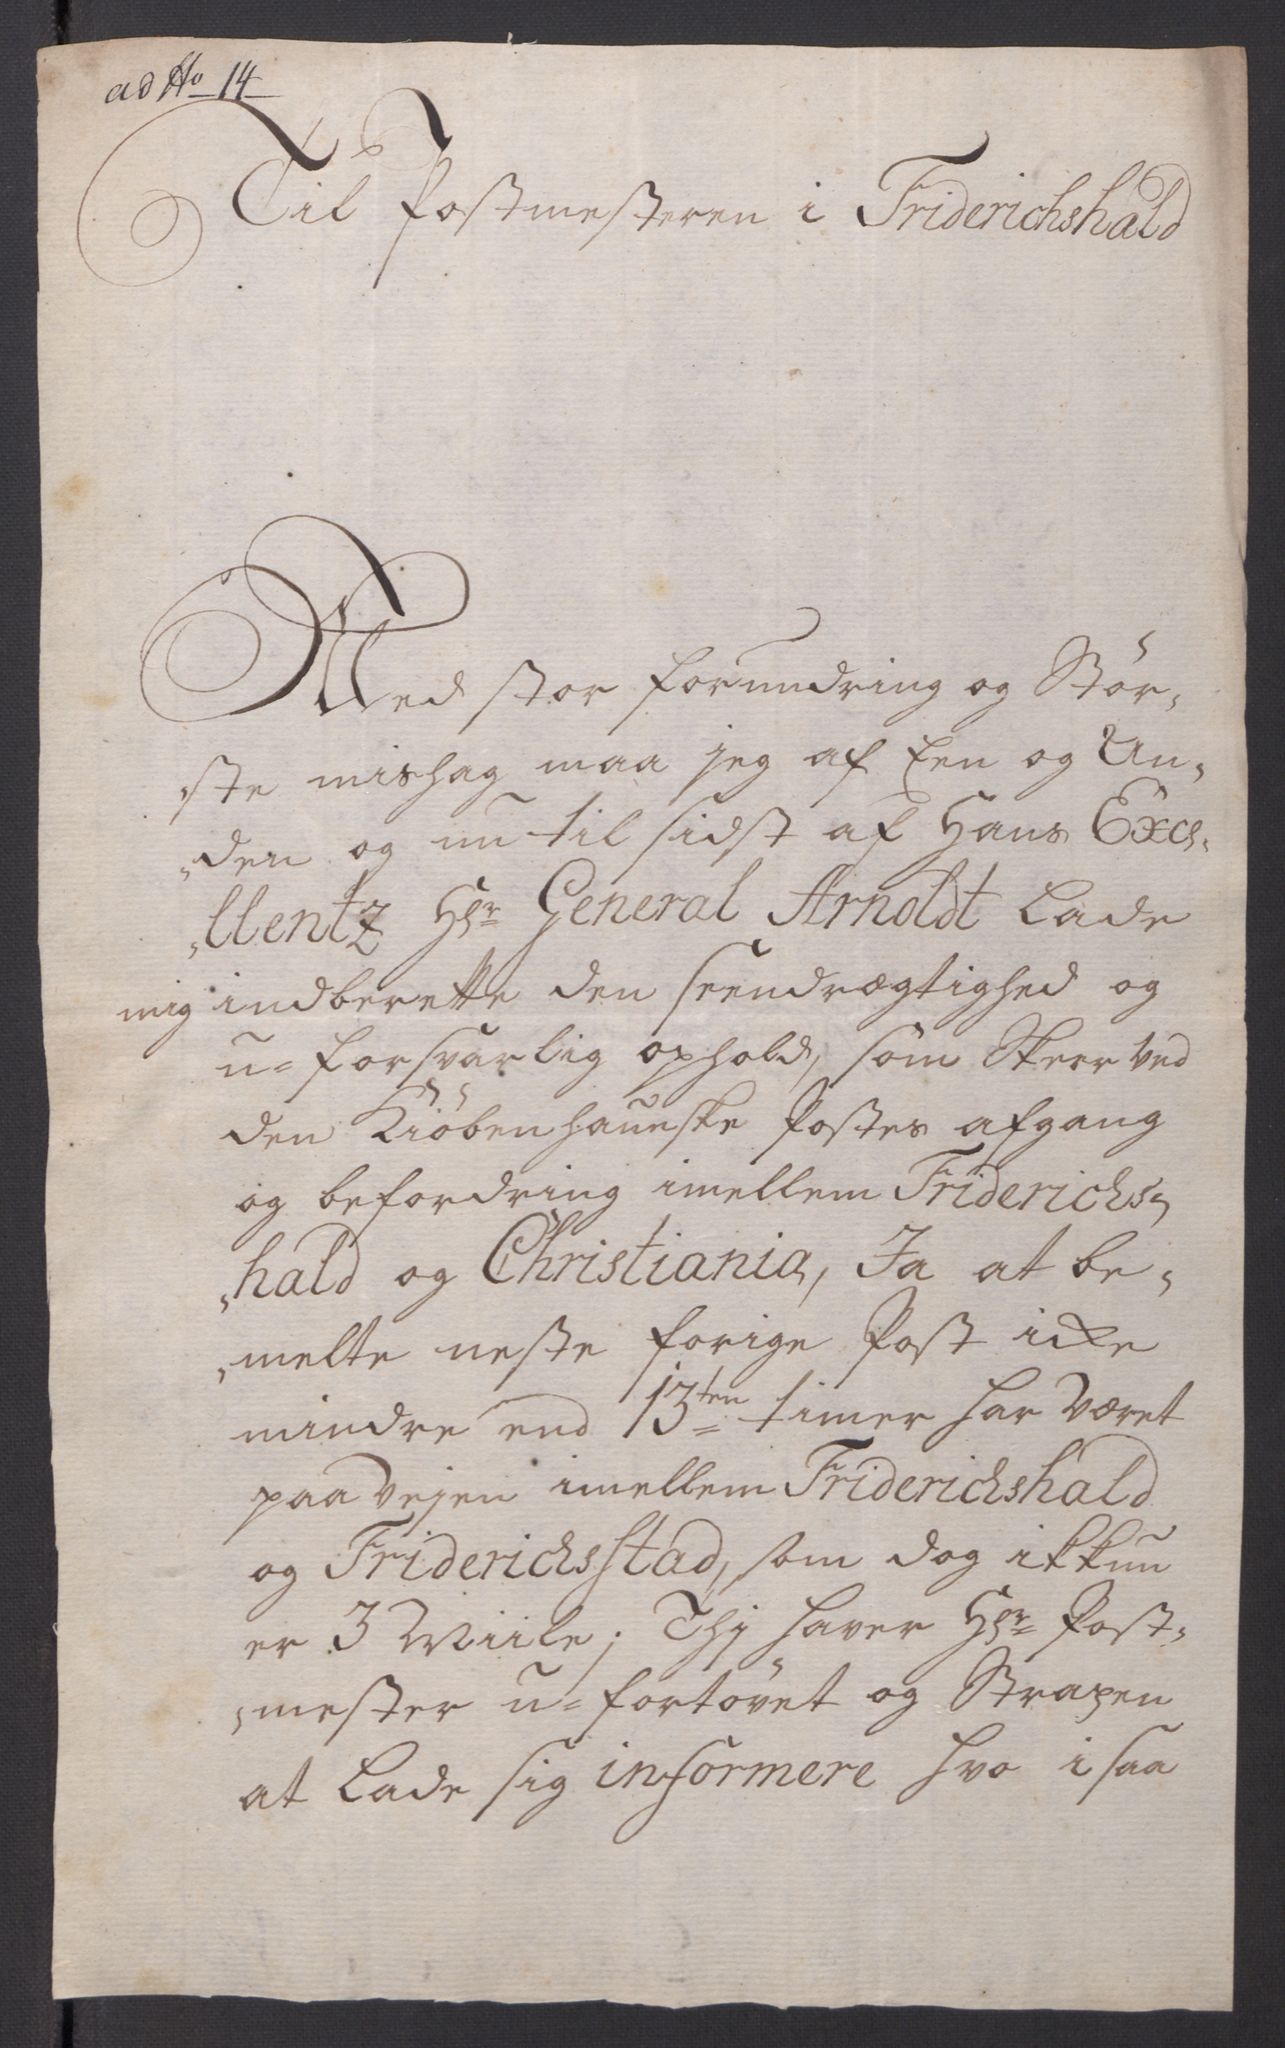 ad No 14
Til Postmesteren i Friderichshald
Med stor forundring og Stör,
,ste mishag maa jeg af Een og An,
,den og nu til sidst af Hans Exce,
,llentz Hr General Arnoldt lade
mig indberette den seendrægtighed og
u=forsvarlig ophold, som Skeer ved
den Kiöbenhaunske Postes afgang
og befordring imellem Friderichs,
,hald og Christiania, Ja at be,
,melte neste forige Post icke
mindre end 13ten timer har Været
paa Vejen imellem Friderichshald
og Friderichsstad, som dog ikkun
er 3 Miile; Thj haver Hr Post,
,mester u=fortövet og Straxen
at lade sig informere hvo i saa